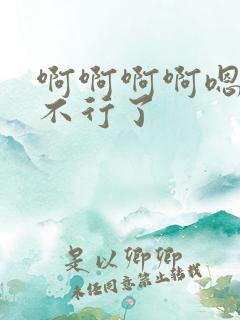 啊啊啊啊嗯
不行了
是以卿卿
未经同意禁止转载